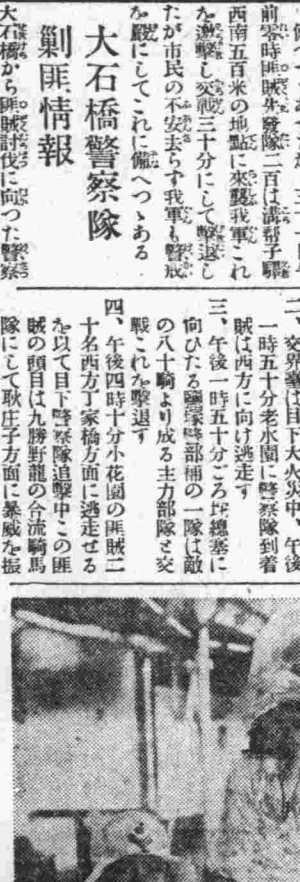 前零時匪賊先發隊二百は溝帮子驛
西南五百米の地點に來襲我軍これ
を激擊し交戰三十分にして擊退し
たが市民の不安去らず我軍も警戒
を嚴にしてこれに備へつゝある
大石橋警察隊
剿匪情報
大石橋から匪賊討伐に向つた警察
二、交界臺は目下大火災中、午後
一時五十分老水園に警察隊到着
賊は西方に向け逃走す
三、午後一時五十分ごろ 總寨に
向ひたる 警部補の一隊は敵
の八十騎より成る主力部隊と交
戰これを擊退す
四、午後四時十分小花園の匪賊二
十名西方丁家橋方面に逃走せる
を以て目下警察隊追擊中この匪
賊の頭目は九勝野龍の合流騎馬
隊にして耿庄子方面に暴威を振